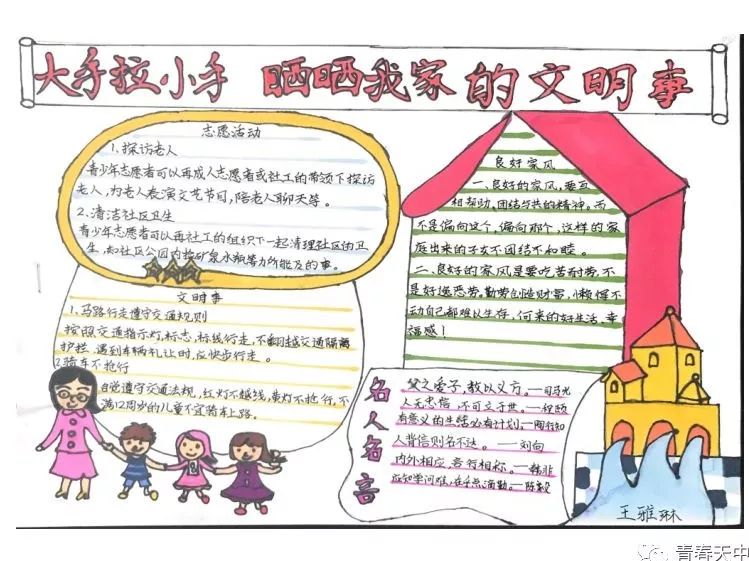 大手拉小手 晒晒我家的文明事
志愿活动
1.探访老人
青少年志愿者可以再成人志愿者或社工的带领下探访
老人,为老人表演文艺节目,陪老人聊天等。
2.清洁社区卫生
青少年志愿者可以再社工的组织下一起清理社区的卫
生,如社区公园内捡矿泉水瓶等力所能及的事。
文明事
1.马路行走遵守交通规则
按照交通指示灯,标志,标线行走,不翻越交通隔离
护栏.遇到车辆礼让时,应快步行走。
2骑车不抢行
自觉遵守交通法规,红灯不越线,黄灯不抢行,不
满12周岁的儿童不宜骑车上路。
良好家风
一、良好的家风,要互
相帮助、团结与共的精神。而
不是偏向这个,偏向那个,这样的家
庭出来的子女不团结不和睦。
二、良好的家风是要吃苦耐劳,不
是好逸恶劳,勤劳创造财富,懒惰不
动自己都难以生存,何来的好生活、幸
福感!
名人名言
父之爱子,教以义方。—司马光
人无忠信,不可立于世。—程颐
有意义的生活必有计划—陶行知
人背信则名不达。—刘向
内外相应,言行相称。—韩非
应知学问难,在乎点滴勤。—陈毅
王雅琳
青春天中